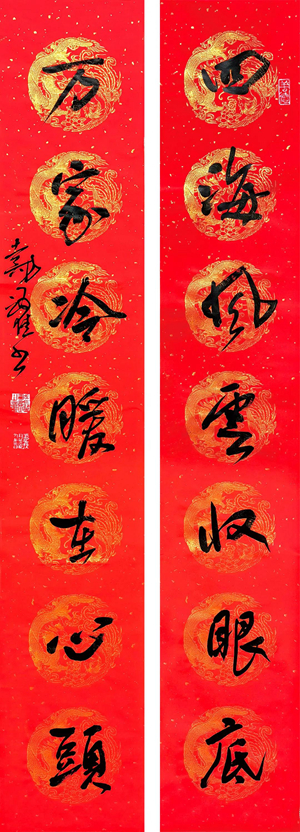 四海风雲收眼底
万家冷暖在心頭